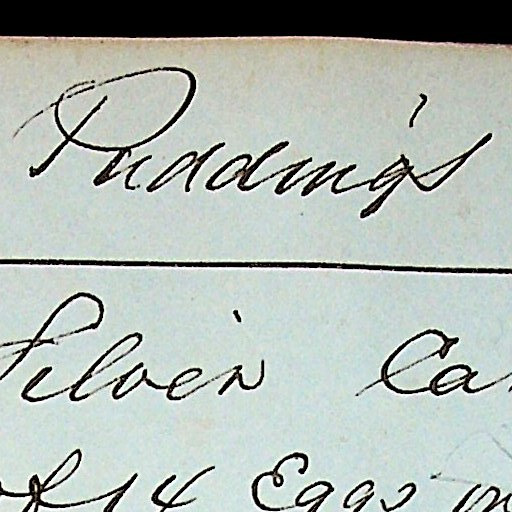 Puddings
Silver Ca
of 14 Eggs